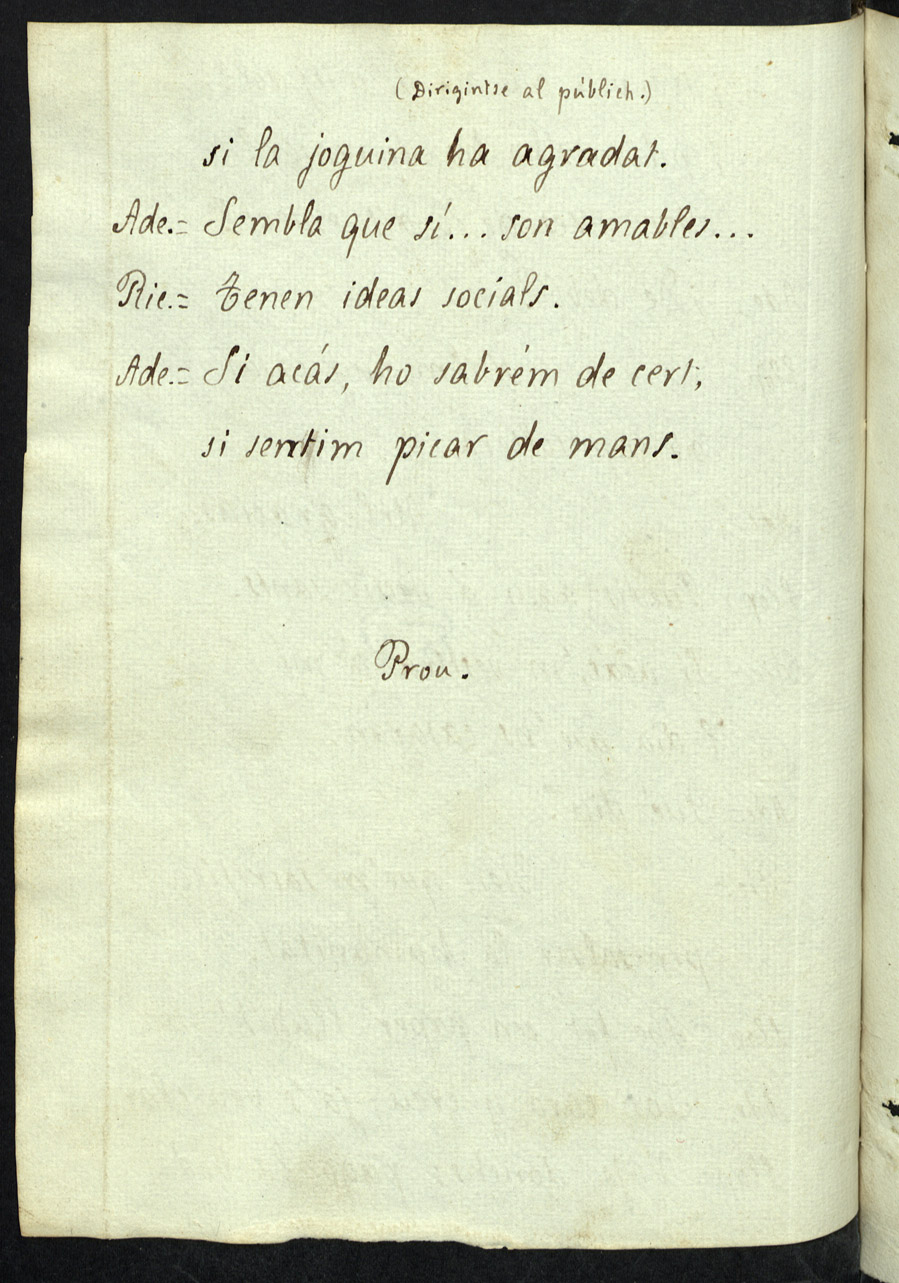 (Dirigintse al públich.)
si la joguina ha agradat.
Ade.= Sembla que sí... son amables...
Ric.= Tenen ideas socials.
Ade.= Si acás, ho sabrém de cert,
si sentim picar de mans.
Prou.